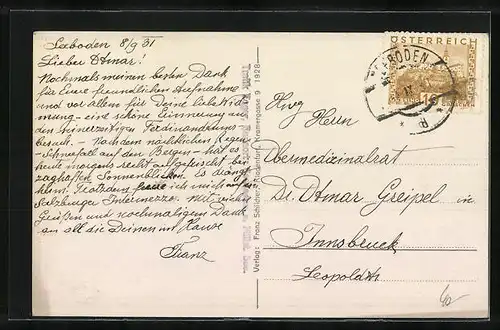 Seeboden 8/9 31
Lieber Otmar!
Nochmals meinen besten Dank
für Eure freundlichen Aufnahme
und vor allem für Deine liebe Wid-
mung - eine schöne Erinnerung an
den seinerzeitigen Ferdinandeums-
besuch. - Nachdem nächtlichen Regen
- Schneefall auf den Bergen - hat es
heute morgens recht aufgefrischt bei
zaghaften Sonnenblicken. Es drängt
heim! Trotzdem freue ich mich auf
Salzburger Intermezzo. Mit vielen
Grüßen und nochmaligem Dank
an all die Deinen im Hause
Franz
Verlag: Franz Schilcher, Klagenfurt, Kramergasse 9 1928
ÖSTERREICH
SEEBODEN
Hwg Herrn
Obermedizinalrat
Dr. Otmar Greipel in
Innsbruck
Leopoldstr